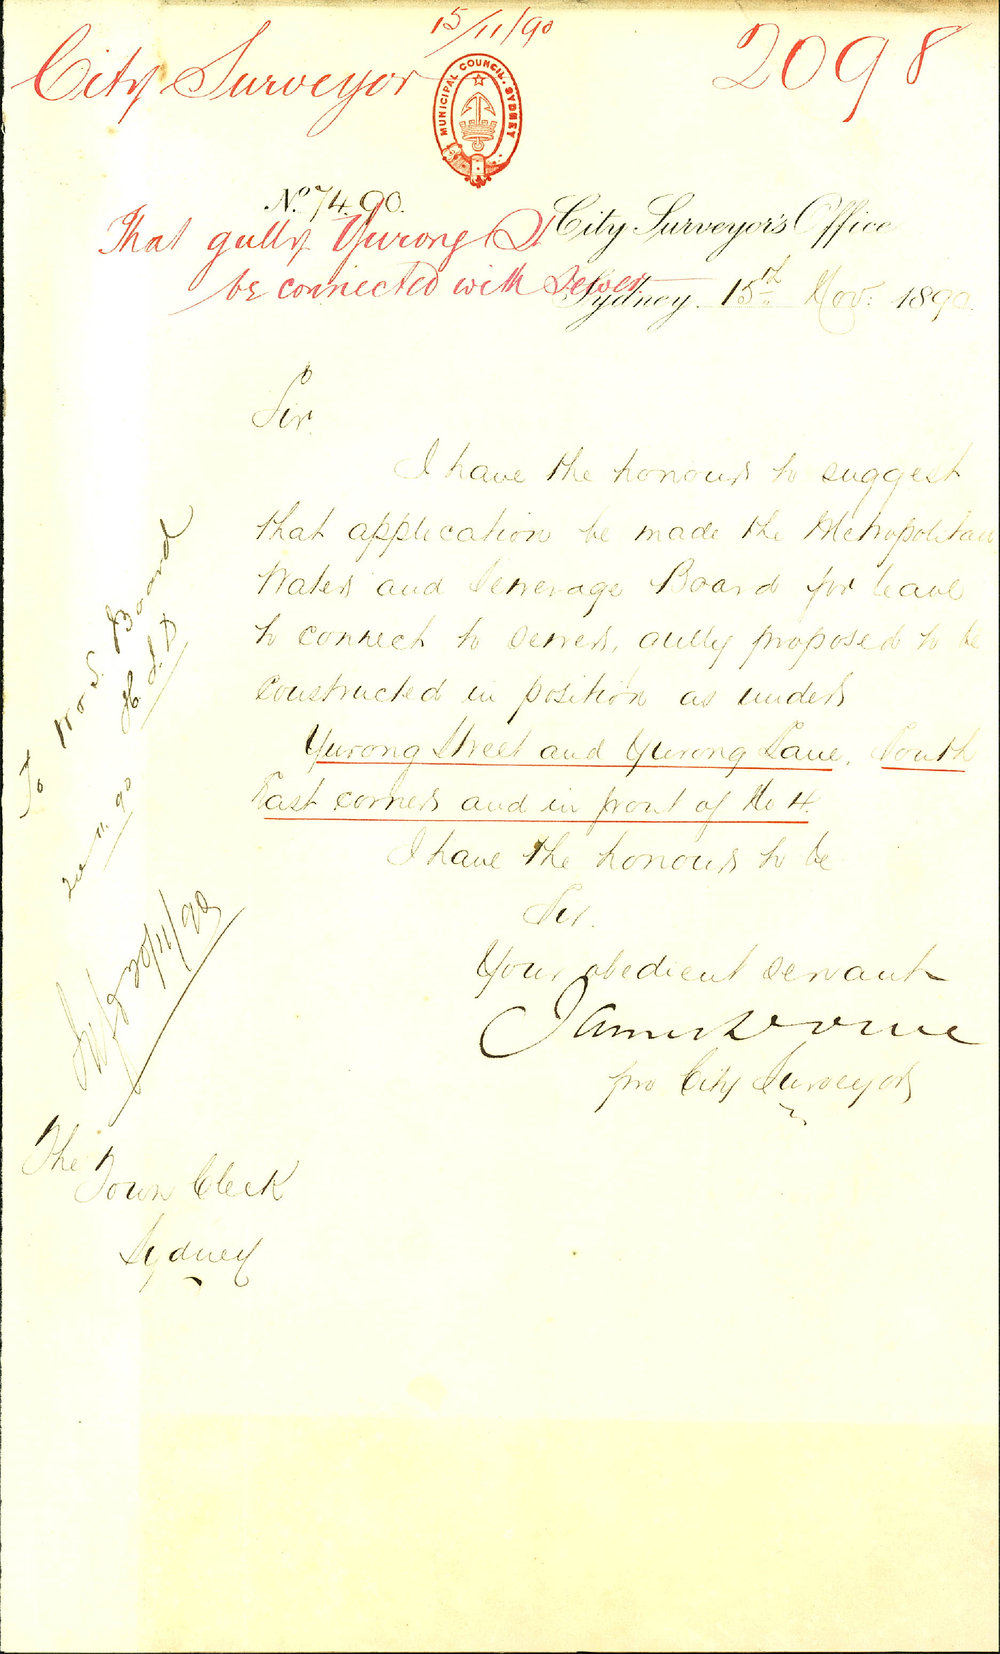 15/11/90
City Surveyor
2098
MUNICIPAL COUNCIL. SYDNEY
No. 74.90.
City Surveyor's Office
That gully Yurong St
be connected with Sewer
Sydney 15th Nov: 1890
Sir.
I have the honour to suggest
that application be made the Metropolitan
Water and Sewerage Board for leave
to connect to sewer, gully proposed to be
constructed in position as under
Yurong Street and Yurong Lane, South
East corner and in front of No 4.
I have the honour to be
Sir.
Your obedient servant
James
pro City Surveyor
To W & S. Board
20.11.90
20/11/90
The
Town Clerk
Sydney